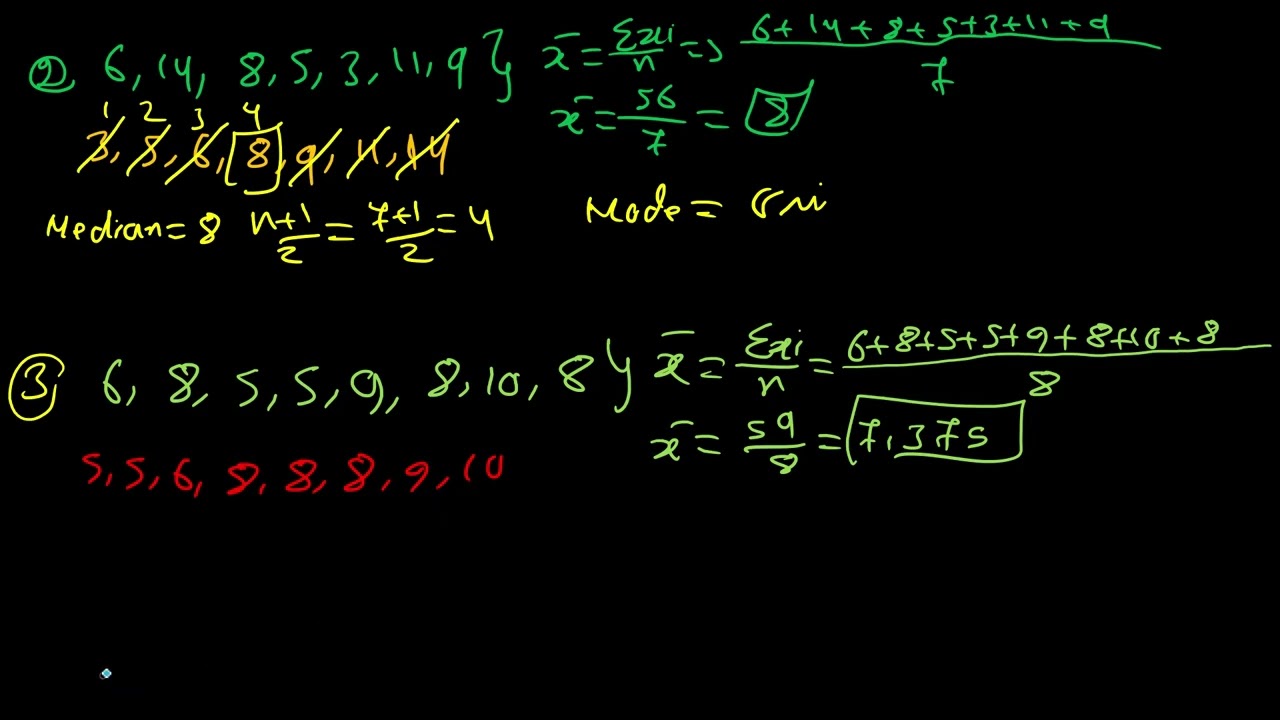 2, 6, 14, 8, 5, 3, 11, 9 } x̄ = Σxi/n => (6+14+8+5+3+11+9)/7
x̄ = 56/7 = 8
1 2 3 4
3, 5, 6, 8, 9, 11, 14
Median = 8 (n+1)/2 = (7+1)/2 = 4
Mode =
3, 6, 8, 5, 5, 9, 8, 10, 8 } x̄ = Σxi/n = (6+8+5+5+9+8+10+8)/8
x̄ = 59/8 = 7,375
5, 5, 6, 8, 8, 8, 9, 10